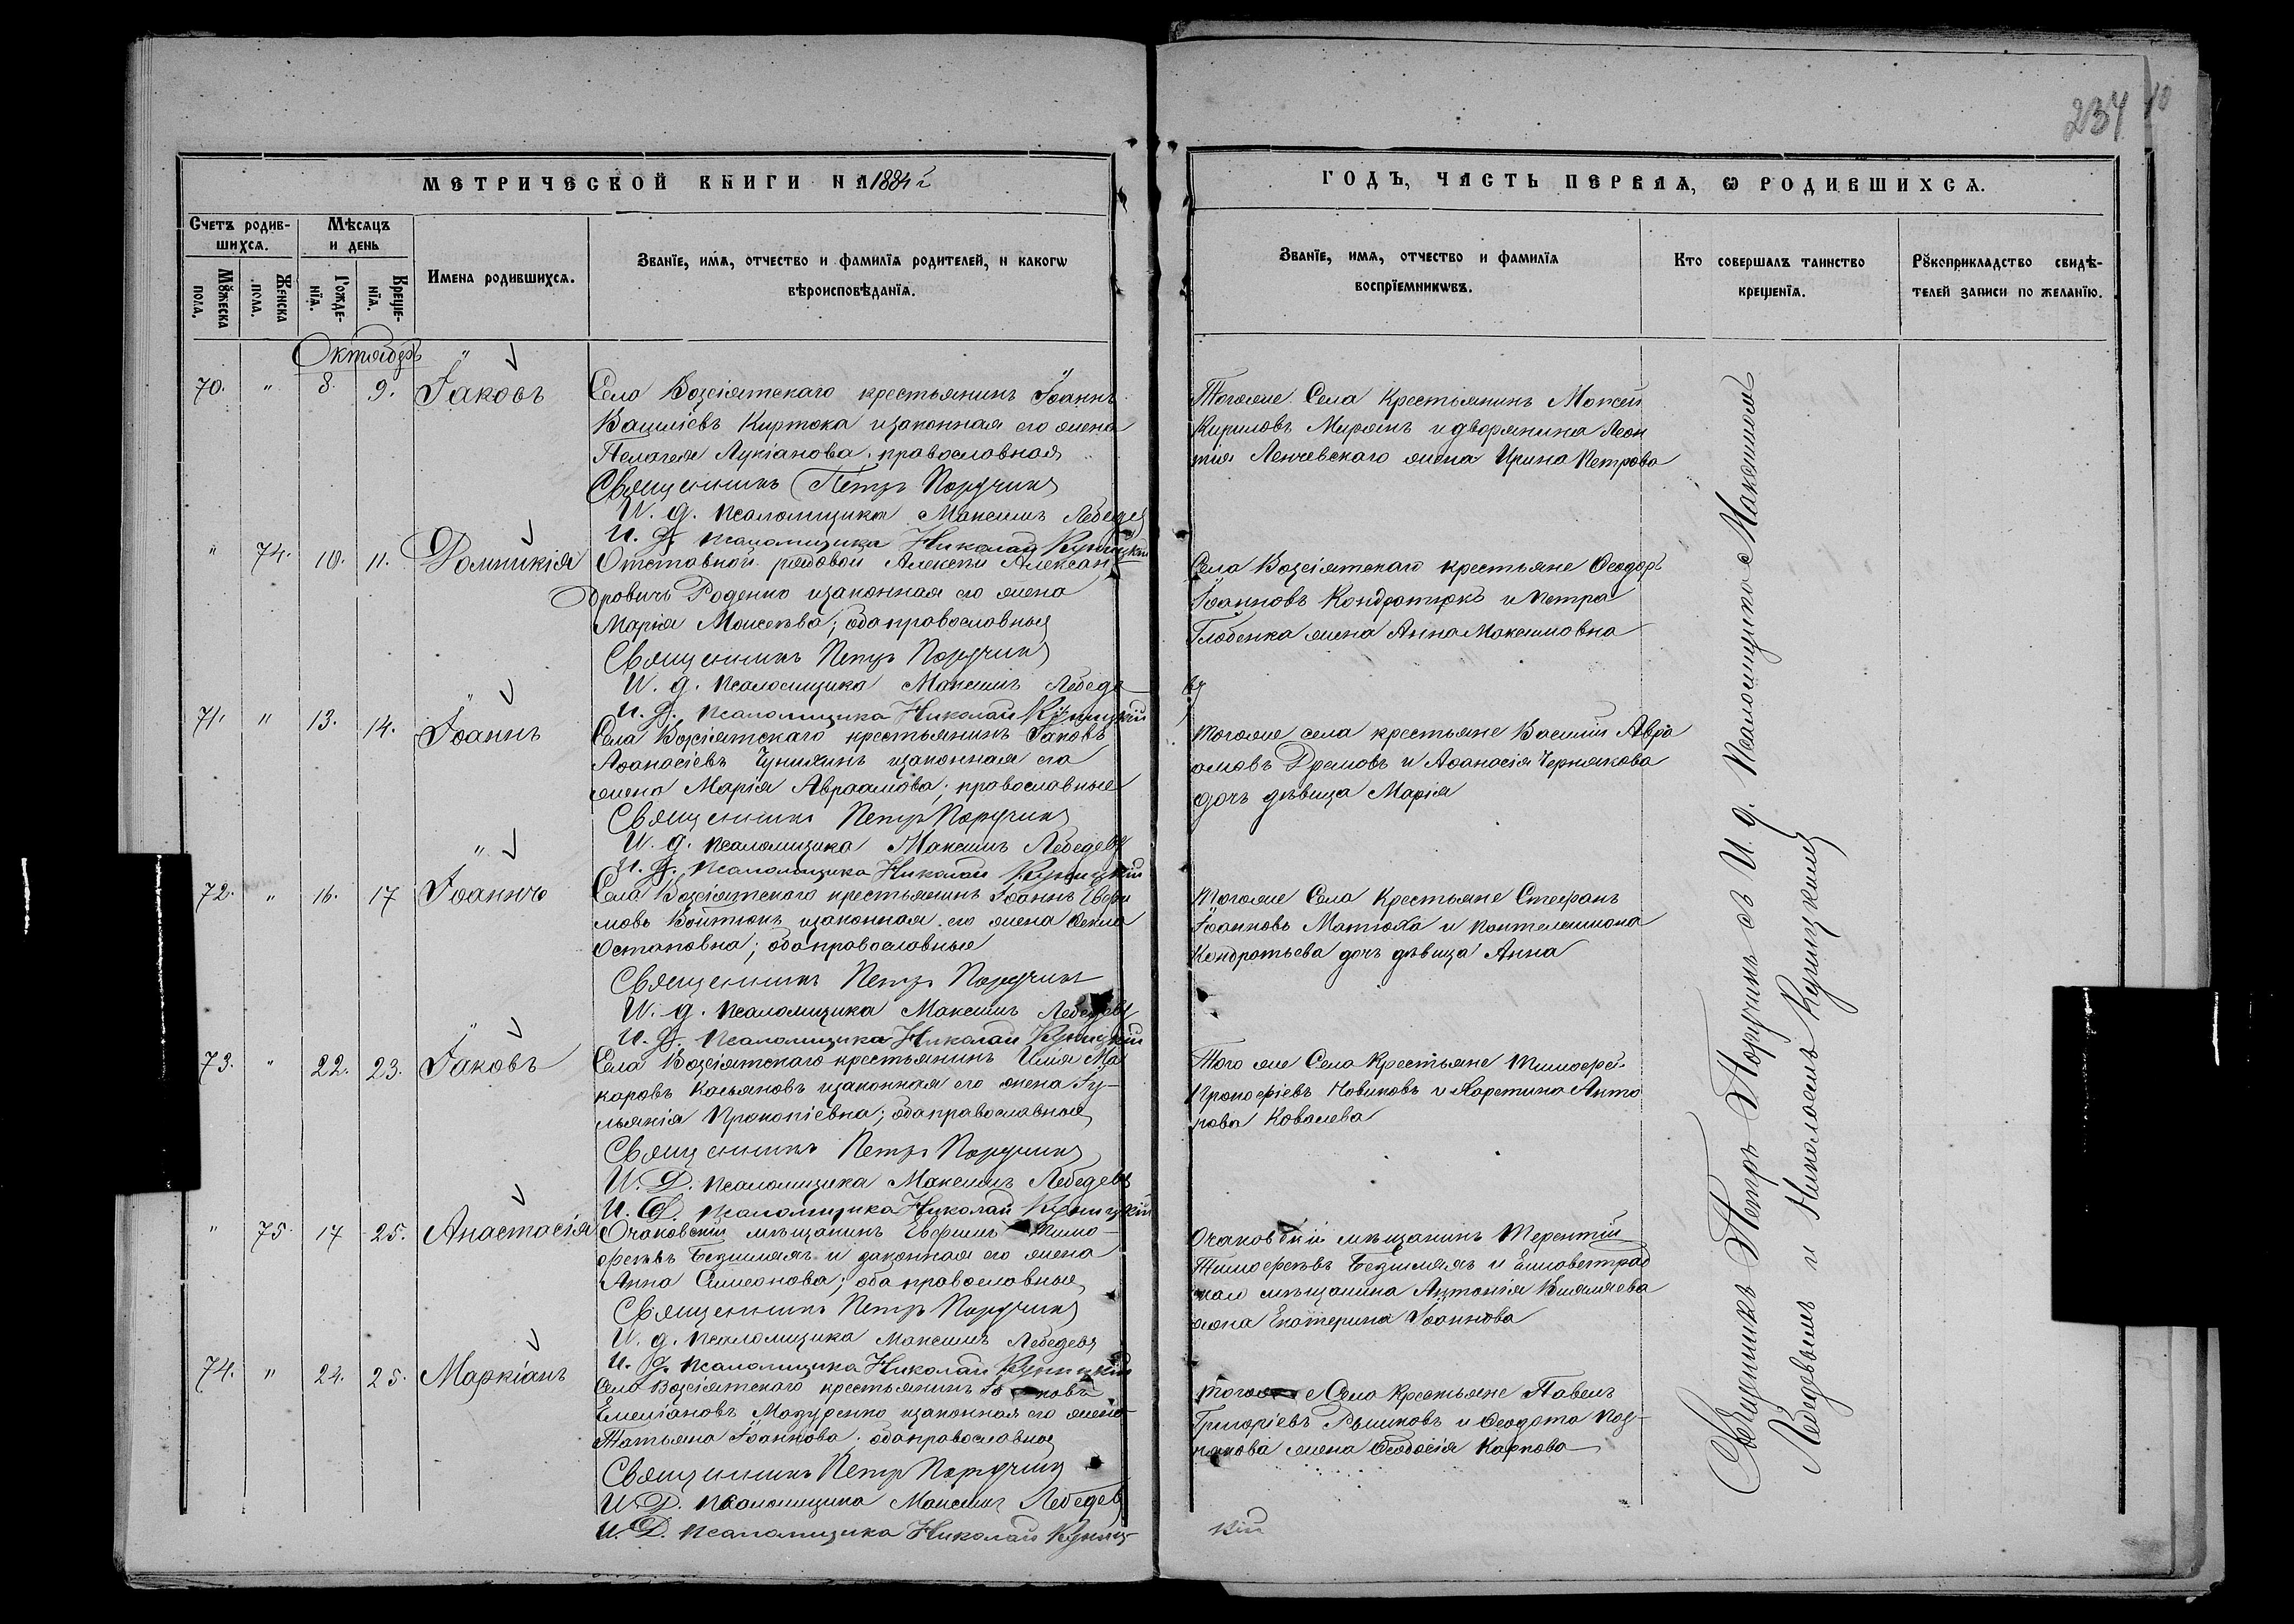 234
10
МЕТРИЧЕСКОЙ КНИГИ НА 1884 й
ГОДЪ, ЧАСТЬ ПЕРВАЯ, Ѡ РОДИВШИХСѦ.
Счетъ родив-
шихсѧ.
Мѣсѧцъ
и день
Мꙋжеска
пола.
Женска
пола.
Рожде-
нїѧ.
Креще-
нїѧ.
Имена родившихсѧ.
Званїе, имѧ, отчество и фамилїѧ родителей, и какогѡ
вѣроисповѣданїѧ.
Званїе, имѧ, отчество и фамилїѧ
воспрїемникѡвъ.
Кто совершалъ таинство
крещенїѧ.
Рꙋкоприкладство свидѣ-
телей записи по желанїю.
Октябрь
70. " 8. 9. Іаковъ
Села Возсіятскаго крестьянинъ Іоаннъ
Василіевъ Киртока изаконная его жена
Пелагея Лукіанова, православная
Священникъ Петръ Поручинъ
И. д. псаломщика Максимъ Лебедев
И. д. псаломщика Николай Куницкій
Тогоже Села Крестьянинъ Моисей
Кириловъ Мирянъ и дворянина Леон
тия Ленчевскаго жена Ирина Петрова
" 74. 10. 11. Домникія
Отставной рядовой Алексѣй Алексан-
дровичъ Роденко изаконная его жена
Марія Моисеева; оба православные
Священникъ Петръ Поручинъ
И. д. псаломщика Максимъ Лебеде
въ
И. д. псаломщика Николай Куницкій
Села Возсіятскаго крестьяне Ѳеодоръ
Іоанновъ Кондратюкъ и Петра
Глобенка жена Анна Максимовна
71. " 13. 14. Іоаннъ
Села Возсіятскаго крестьянинъ Іаковъ
Аѳанасіевъ Чунихинъ изаконная его
жена Марія Авраамова; православные
Священникъ Петръ Поручинъ
И. д. псаломщика Максимъ Лебедевъ
И. д. псаломщика Николай Куницкій
тогоже села крестьяне Василій Авра
амовъ Дремовъ и Аѳанасія Чернякова
дочь дѣвица Марія
72. " 16. 17 Іоаннъ
Села Возсіятскаго крестьянинъ Іоаннъ Евфи
мовъ Войтюкъ изаконная его жена Ѳекла
Остаповна; оба православные
Священникъ Петръ Поручинъ
И. д. псаломщика Максимъ Лебедевъ
И. д. псаломщика Николай Куницкій
тогоже Села Крестьяне Стефанъ
Іоанновъ Матюха и Пантелеимона
Кондратьева дочь дѣвица Анна
73. " 22. 23. Іаковъ
Села Возсіятскаго крестьянинъ Илія Ма
каровъ Касьяновъ изаконная его жена Гу-
льянія Прокопіевна; оба православные
Священникъ Петръ Поручинъ
И. Д. псаломщика Максимъ Лебедевъ
И. Д. псаломщика Николай Куницкій
Того же Села Крестьяне Тимофей
Прокофіевъ Новиковъ и Харетина Анто
нова Ковалева
" 75. 17 25. Анастасія
Очаковскій мѣщанинъ Евфимъ Тимо-
фѣевъ Безшляхъ и законная его жена
Анна Симеонова; оба православные
Священникъ Петръ Поручинъ
И. д. псаломщика Максимъ Лебедевъ
И. д. псаломщика Николай Куницкій
Очаковскій мѣщанинъ Терентій
Тимофѣевъ Безшляхъ и Елисаветград
жена Екатерина Іоаннова
74. " 24. 25. Маркіанъ
Села Возсіятскаго крестьянинъ
Емеліановъ Мазуренко изаконная его жена
Татьяна Іоаннова; оба православные
Священникъ Петръ Поручинъ
И. Д. псаломщика Максимъ Лебедевъ
И. Д. псаломщика Николай Куниц-
кій
тогоже Села Крестьяне Павелъ
Григоріевъ Рыжковъ и Ѳеодота Поз-
някова жена Ѳеодосія Карпова
Священникъ Петръ Поручинъ съ И. д. Псаломщика Максимомъ
Лебедевымъ и Николаемъ Куницкимъ